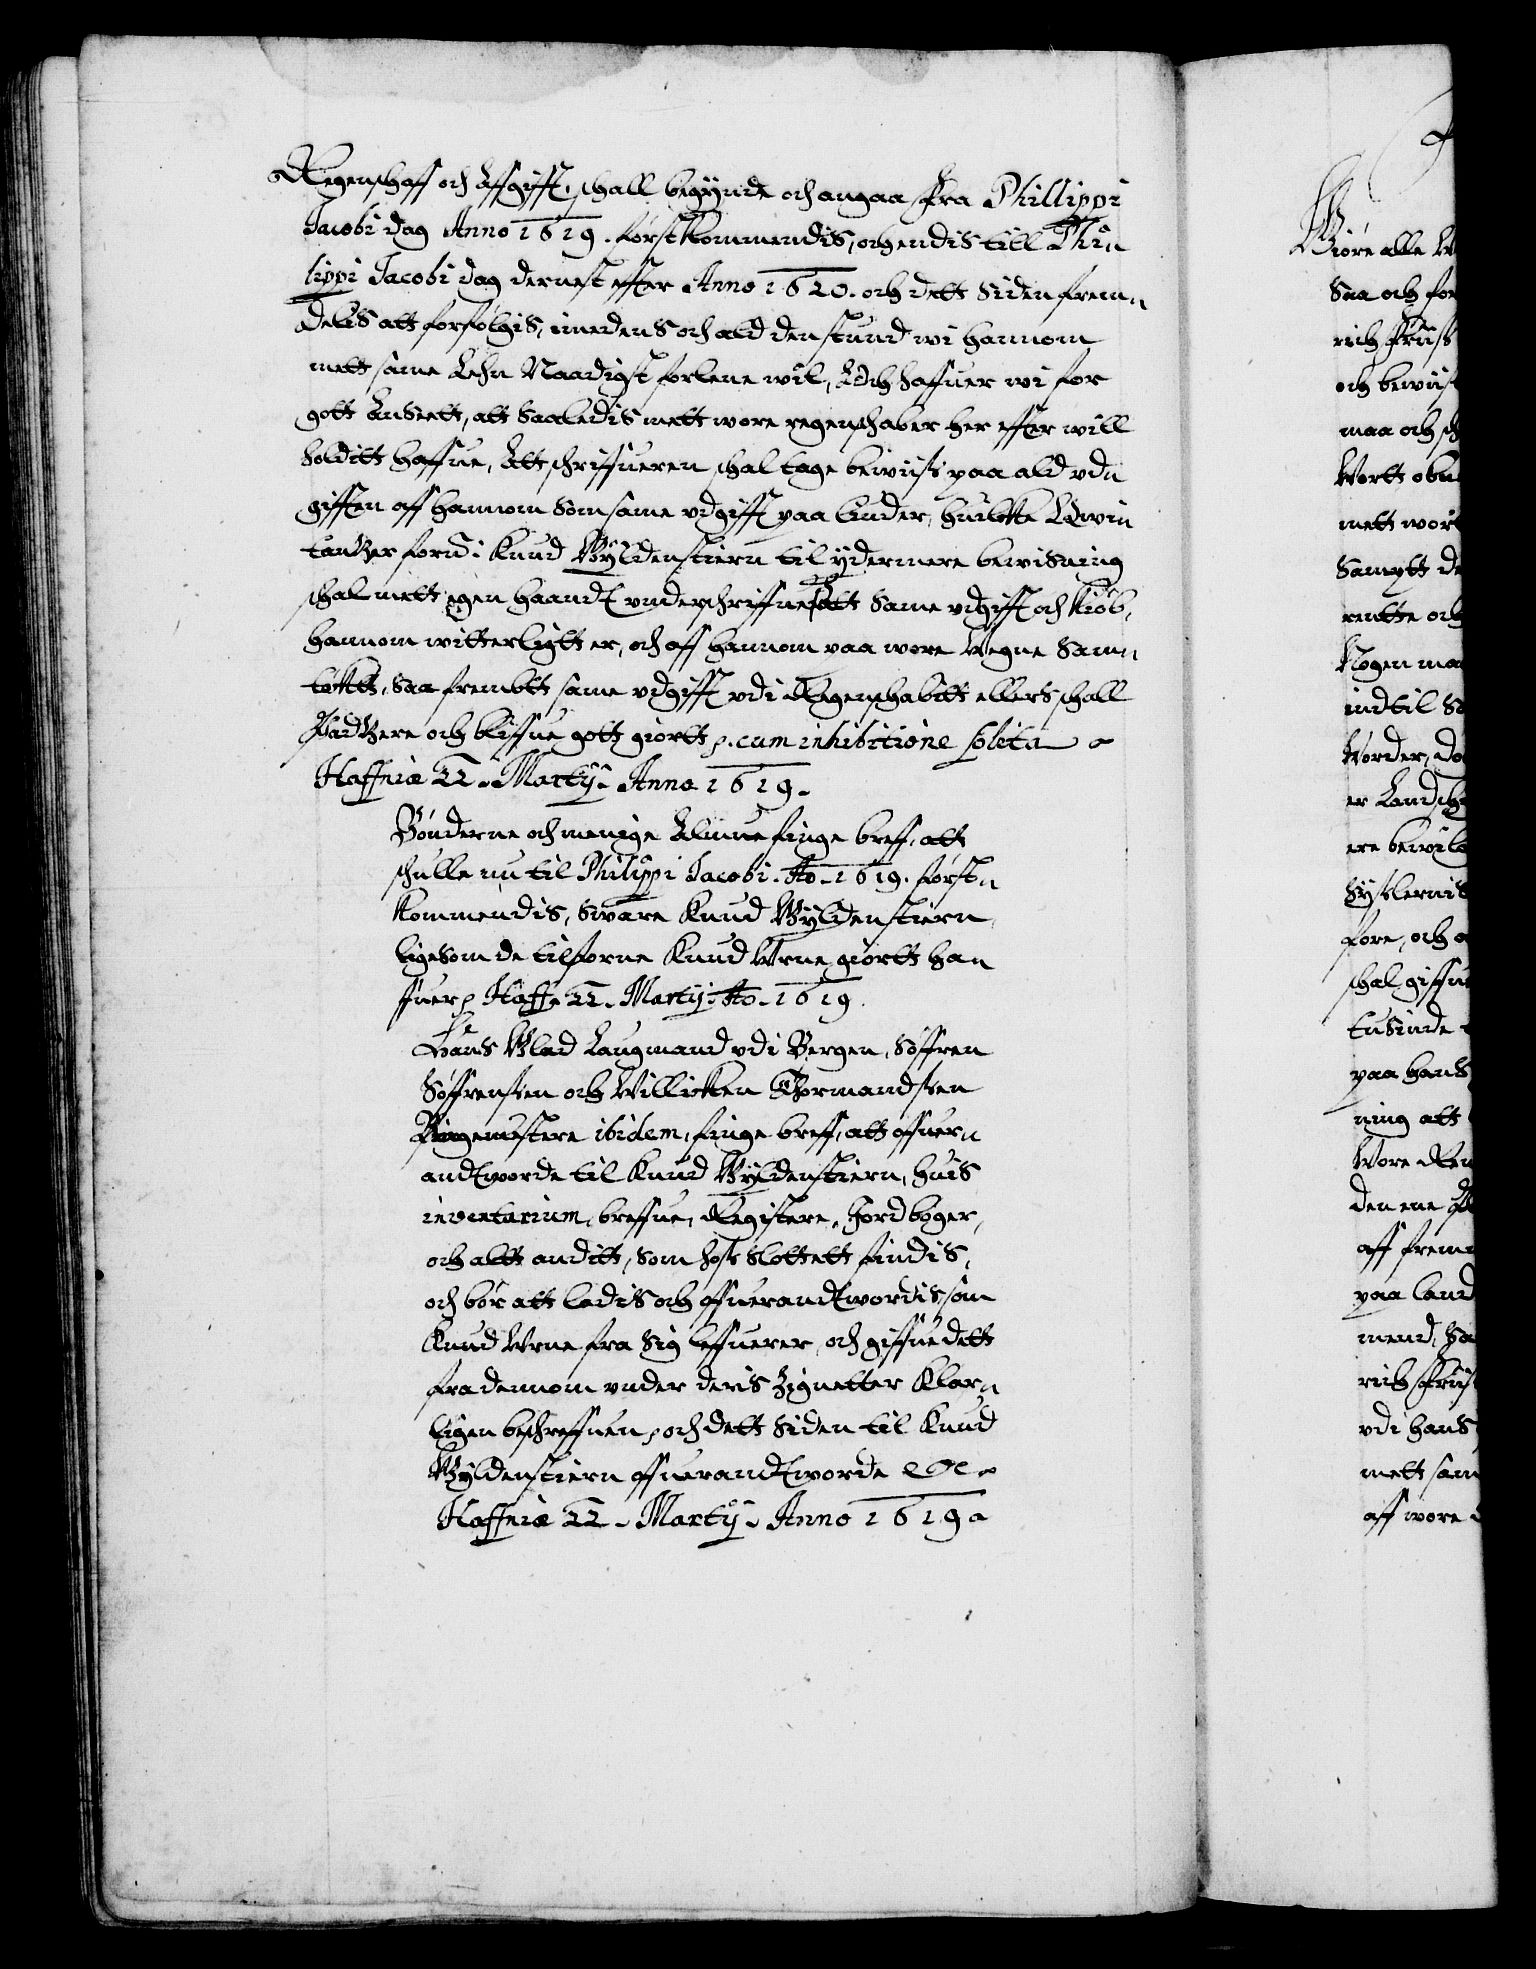 Regenschaff och Affgifft, schall begynde och angaa fra Phillippi
Jacobi dag Anno 1619. førstkommendis, och endis till Phi,,
lippi Jacobi dag dernest effter Anno 1620. och dett siden frem,,
delis att forfølgis, imedens och ald den stund wi hannom
mett same Lehn Naadigst forlene wil, Och haffuer wi for
gott Anseett, att saaledis mett wore regenschaber her effter will
holditt haffue, Att schriffueren schal tage beuiis paa ald vd,,
gifften aff hannom som same vdgifft paa
forn: Knud Gyldenstiern til ydermere beuisning
schal mett egen haandt vnderschriffue, att same vdgifft och kiøb,
hannom witterligtt er, och aff hannom paa wore Vegne sam,,
tøckt, saa frembtt same vdgifft vdi Regenschabitt ellers schall
Passere och bliffue gott giørtt p. cum inhibitione solita
Haffniæ 22. Martij. Anno 1619.
Bønderne och menige Almue finge breff, att
schulle nu til Philippi Jacobi. Ao. 1619. først,,
kommendis, suare Knud Gyldenstiern
ligesom de tilforne Knud Vrne giørtt ha,,
ffuer p Haff. 22. Martij. Ao. 1619.
Hans Glad Laugmand vdi Bergen, Søffren
Søffrensen och Willicken Thormandsen
Borgemestere ibidem, finge breff, att offuer,,
andtworde til Knud Gyldenstiern, huis
inventarium, breffue, Registere, Jordbøger,
och altt anditt, som hoss Slottett findis,
och bør att ladis och offuerandtwordis, som
Knud Vrne fra sig leffuerer, och giffue dett
fra dennom vnder deris Zignetter klar,,
ligen beschreffuen, och dett siden til Knud
Gyldenstiern offuerandtworde etc.
Haffniæ 22. Martij. Anno 1619
Giøre alle
Saa och for
rich
och beuiist
maa och sch
Wortt
mett wor
Sampt de
rentte och
Nogen ma
indtil Sa
Worder, do
er Landsch
ere beuil
Sysslernis
fore, och a
schal giffue
Tusinde
paa hans
ning att
Wore Ren
den ene
aff frem
paa land
mend, Sa
rich
vdi hans
mett sam
aff wore